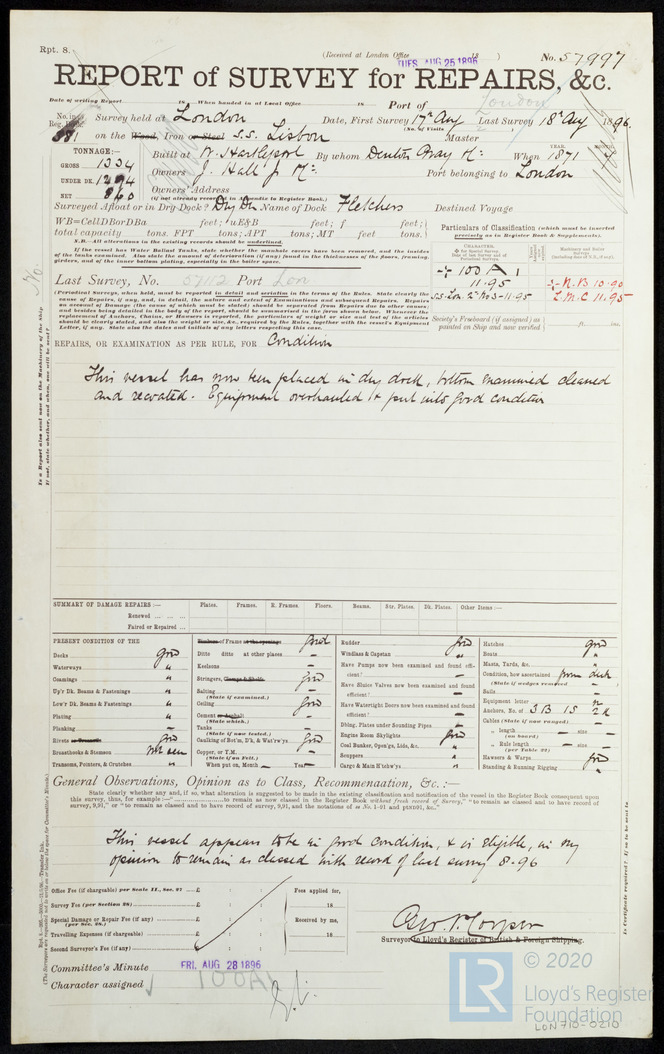 Rpt. 8.
(Received at London Office TUES. AUG 25 1896 18 )
No. 57997
REPORT of SURVEY for REPAIRS, &c.
Date of writing Report 18 When handed in at Local Office 18 Port of London
No. in Reg. Book. 881
Survey held at London Date, First Survey 17th Aug Last Survey 18th Aug 1896
(No. of Visits 2 )
on the Wood, Iron or Steel S.S. Lisbon Master
TONNAGE:—
GROSS 1334
UNDER DK. 1294
NET 860
Built at W. Hartlepool By whom Denton Gray & Co. When YEAR. 1871 MONTH. 7
Owners J. Hall Jr & Co. Port belonging to London
Owners' Address
(if not already recorded in Appendix to Register Book.)
Surveyed Afloat or in Dry Dock? Dry Dk Name of Dock Fletchers Destined Voyage
WB=CellDBorDBa feet; uE&B feet; f feet;
total capacity tons. FPT tons; APT tons; MT feet tons.
N.B.—All alterations in the existing records should be underlined.
If the vessel has Water Ballast Tanks, state whether the manhole covers have been removed, and the insides
of the tanks examined. Also state the amount of deterioration (if any) found in the thicknesses of the floors, framing,
girders, and of the inner bottom plating, especially in the boiler space.
Particulars of Classification (which must be inserted
precisely as in Register Book & Supplements).
100 A 1
11.95
S.S. Lon. 2nd No 3-11.95
N.B 10.90
L.M.C 11.95
Society's Freeboard (if assigned) as painted on Ship and now verified ft. ins.
Last Survey, No. 57112 Port Lon
Periodical Surveys, when held, must be reported in detail and seriatim in the terms of the Rules. State clearly the
cause of Repairs, if any, and, in detail, the nature and extent of Examinations and subsequent Repairs. Repairs
on account of Damage (the cause of which must be stated) should be separated from Repairs due to other causes;
and besides being detailed in the body of the report, should be summarised in the form shown below. Whenever the
replacement of Anchors, Chains, or Hawsers is reported, the particulars of weight or size and test of the articles
should be clearly stated, and also the weight or size, &c., required by the Rules, together with the vessel's Equipment
Letter, if any. State also the dates and initials of any letters respecting this case.
REPAIRS, OR EXAMINATION AS PER RULE, FOR Condition
This vessel has now been placed in dry dock, bottom examined cleaned
and recoated. Equipment overhauled & put into good condition
Is a Report also sent now on the Machinery of the ship
If not, state whether, and when, one will be sent?
No
SUMMARY OF DAMAGE REPAIRS:— Plates. Frames. R. Frames. Floors. Beams. Str. Plates. Dk. Plates. Other Items:—
Renewed
Faired or Repaired
PRESENT CONDITION OF THE
Decks good
Waterways "
Coamings "
Up'r Dk. Beams & Fastenings "
Low'r Dk. Beams & Fastenings "
Plating "
Planking —
Rivets or Treenails good
Breasthooks & Stemson not seen
Transoms, Pointers, & Crutches "
Timbers of Frame at the openings good
Ditto ditto at other places —
Keelsons —
Stringers, Clamps & Shelfs good
Salting —
(State if examined.)
Ceiling good
Cement or Asphalt —
(State which.)
Tanks —
(State if now tested.)
Caulking of Bot'm, D'k, & Wat'rw'ys good
Copper, or Y.M. —
(State if on Felt.)
When put on, Month — Year —
Rudder good
Windlass & Capstan "
Have Pumps now been examined and found efficient? —
Have Sluice Valves now been examined and found efficient? —
Have Watertight Doors now been examined and found efficient? —
Dblng. Plates under Sounding Pipes —
Engine Room Skylights good
Coal Bunker, Open'gs, Lids, &c. "
Scuppers "
Cargo & Main H'tchw'ys "
Hatches good
Boats "
Masts, Yards, &c. "
Condition, how ascertained from deck
(State if wedges removed —
Sails "
Equipment letter
Anchors, No. of 3 B 1 S 2 K
Cables (State if now ranged)
„ length — size —
(on board)
„ Rule length — size —
(per Table 22)
Hawsers & Warps good
Standing & Running Rigging "
General Observations, Opinion as to Class, Recommendation, &c.:—
State clearly whether any, and if so, what alteration is suggested to be made in the existing classification and notification of the vessel in the Register Book consequent upon
this survey, thus, for example:—" to remain as now classed in the Register Book without fresh record of Survey," "to remain as classed and to have record of
survey, 9,91," or "to remain as classed and to have record of survey, 9,91, and the notations of ss No. 1-91 and ptND91, &c."
This vessel appears to be in good condition, & is eligible, in my
opinion to remain as classed with record of last survey 8.96
Office Fee (if chargeable) per Scale II., Sec. 27 £ : :
Survey Fee (per Section 28) £ : :
Special Damage or Repair Fee (if any) £ : :
(per Sec. 28.)
Travelling Expenses (if chargeable) £ : :
Second Surveyor's Fee (if any) £ : :
Fees applied for,
18
Received by me,
18
Surveyor to Lloyd's Register of British & Foreign Shipping.
Committee's Minute FRI. AUG 28 1896
Character assigned 100A1
Is Certificate required? If so, to be sent to
LR
© 2020
Lloyd's Register
Foundation
LON710-0210